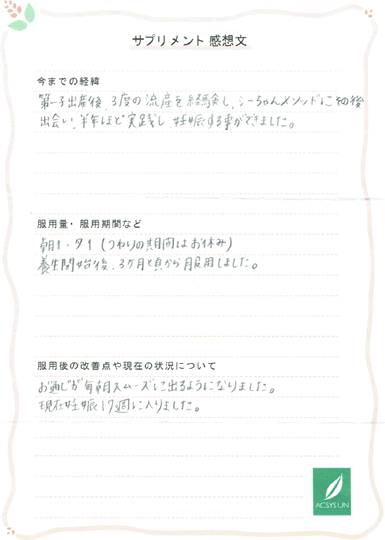 サプリメント 感想文
今までの経緯
第一子出産後、3度の流産を経験し、シーちゃんメソッドにその後
出会い、半年ほど実践し、妊娠する事ができました。
服用量・服用期間など
朝1・夕1 (つわりの期間はお休み)
養生開始後、3ヶ月と頃から服用しました。
服用後の改善点や現在の状況について
お通じが毎朝スムーズに出るようになりました。
現在妊娠17週に入りました。
ACSYS UN